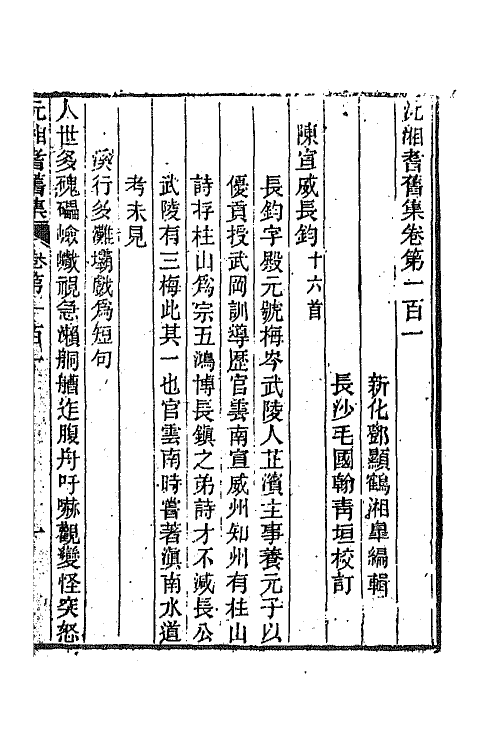 沅湘耆舊集卷第一百一
新化鄧顯鶴湘臯編輯
長沙毛國翰靑垣校訂
陳宣威長鈞十六首
長鈞字殿元號梅岑武陵人芷濱主事養元子以
優貢授武岡訓導歷官雲南宣威州知州有桂山
詩存桂山爲宗五鴻博長鎮之弟詩才不減長公
武陵有三梅此其一也官雲南時嘗著滇南水道
考未見
溪行多灘壩戲爲短句
人世多磈礧嶮巇視急瀨舸艚迮腹舟吁嚇觀變怪突怒
沅湘耆舊集 卷第一百一 一